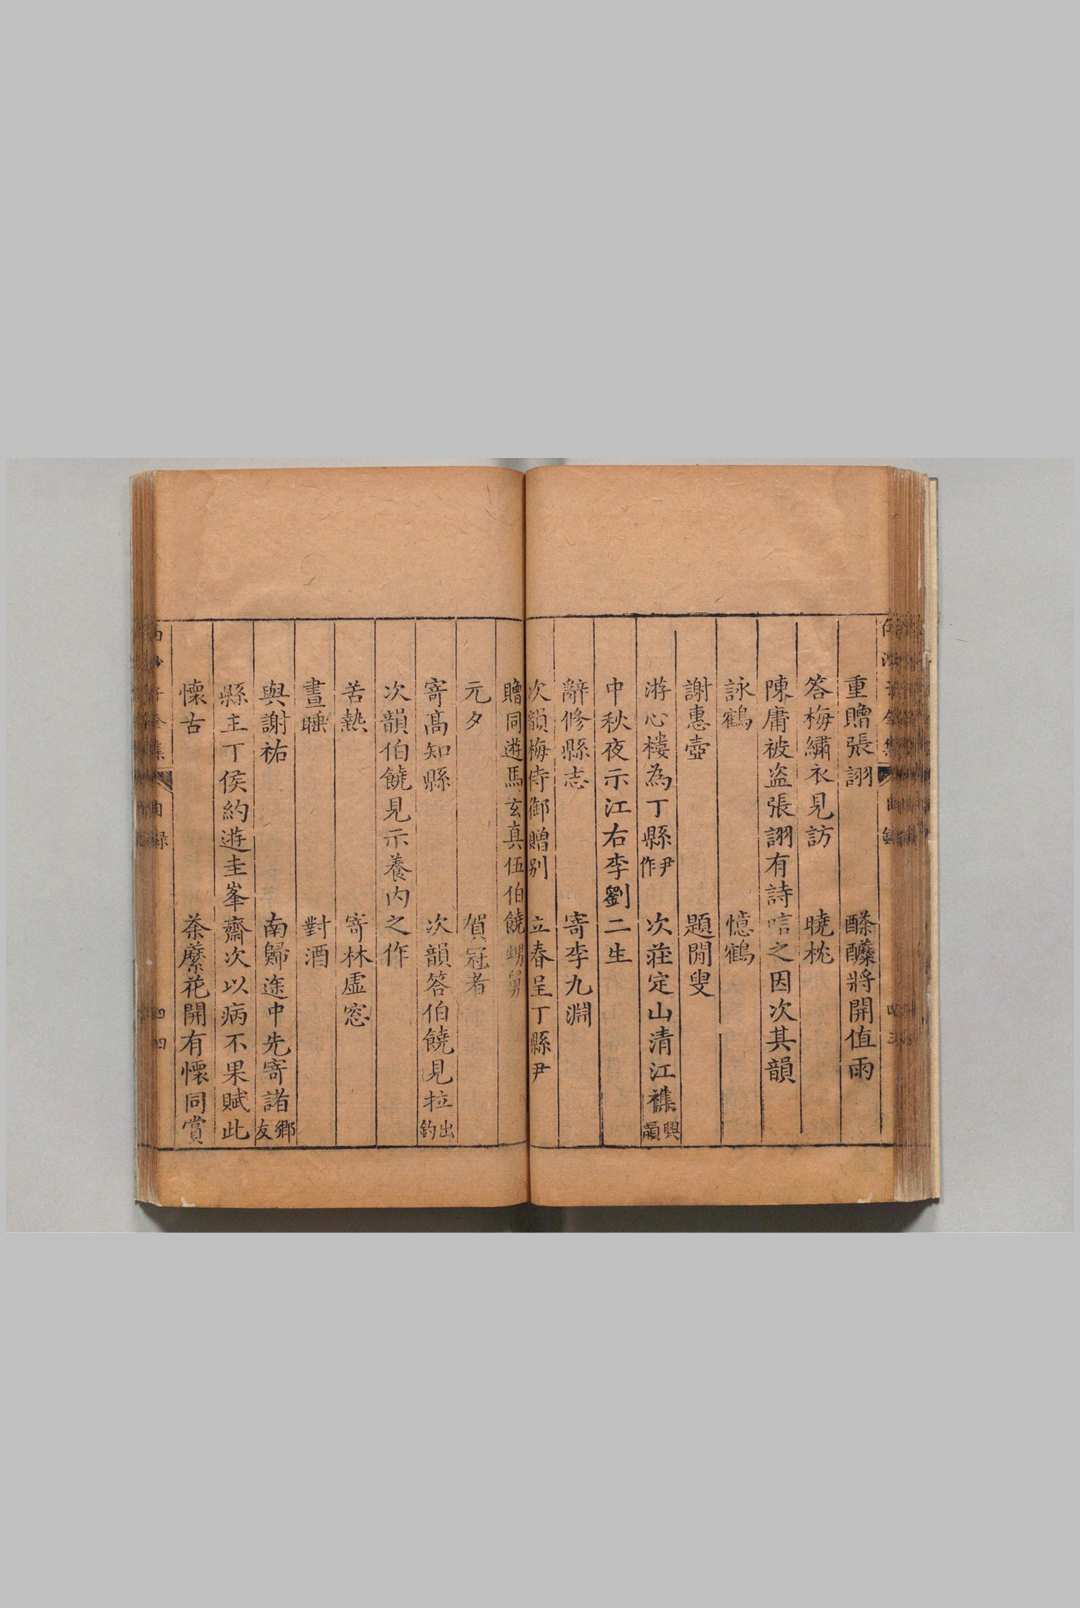 重贈張詡 酴醾將開值雨
答梅繡衣見訪 曉枕
陳庸被盜張詡有詩唁之因次其韻
詠鶴 憶鶴
謝惠壺 題閒叟
游心樓為丁縣尹作 次莊定山清江襍興韻
中秋夜示江右李劉二生
辭修縣志 寄李九淵
次韻梅侍御贈別 立春呈丁縣尹
贈同遊馬玄真伍伯饒甥舅
元夕 賀冠者
寄高知縣 次韻答伯饒見拉出釣
次韻伯饒見示養內之作
苦熱 寄林虛窓
晝睡 對酒
與謝祐 南歸途中先寄諸鄉友
縣主丁侯約遊圭峯齋次以病不果賦此
懷古 荼蘼花開有懷同賞